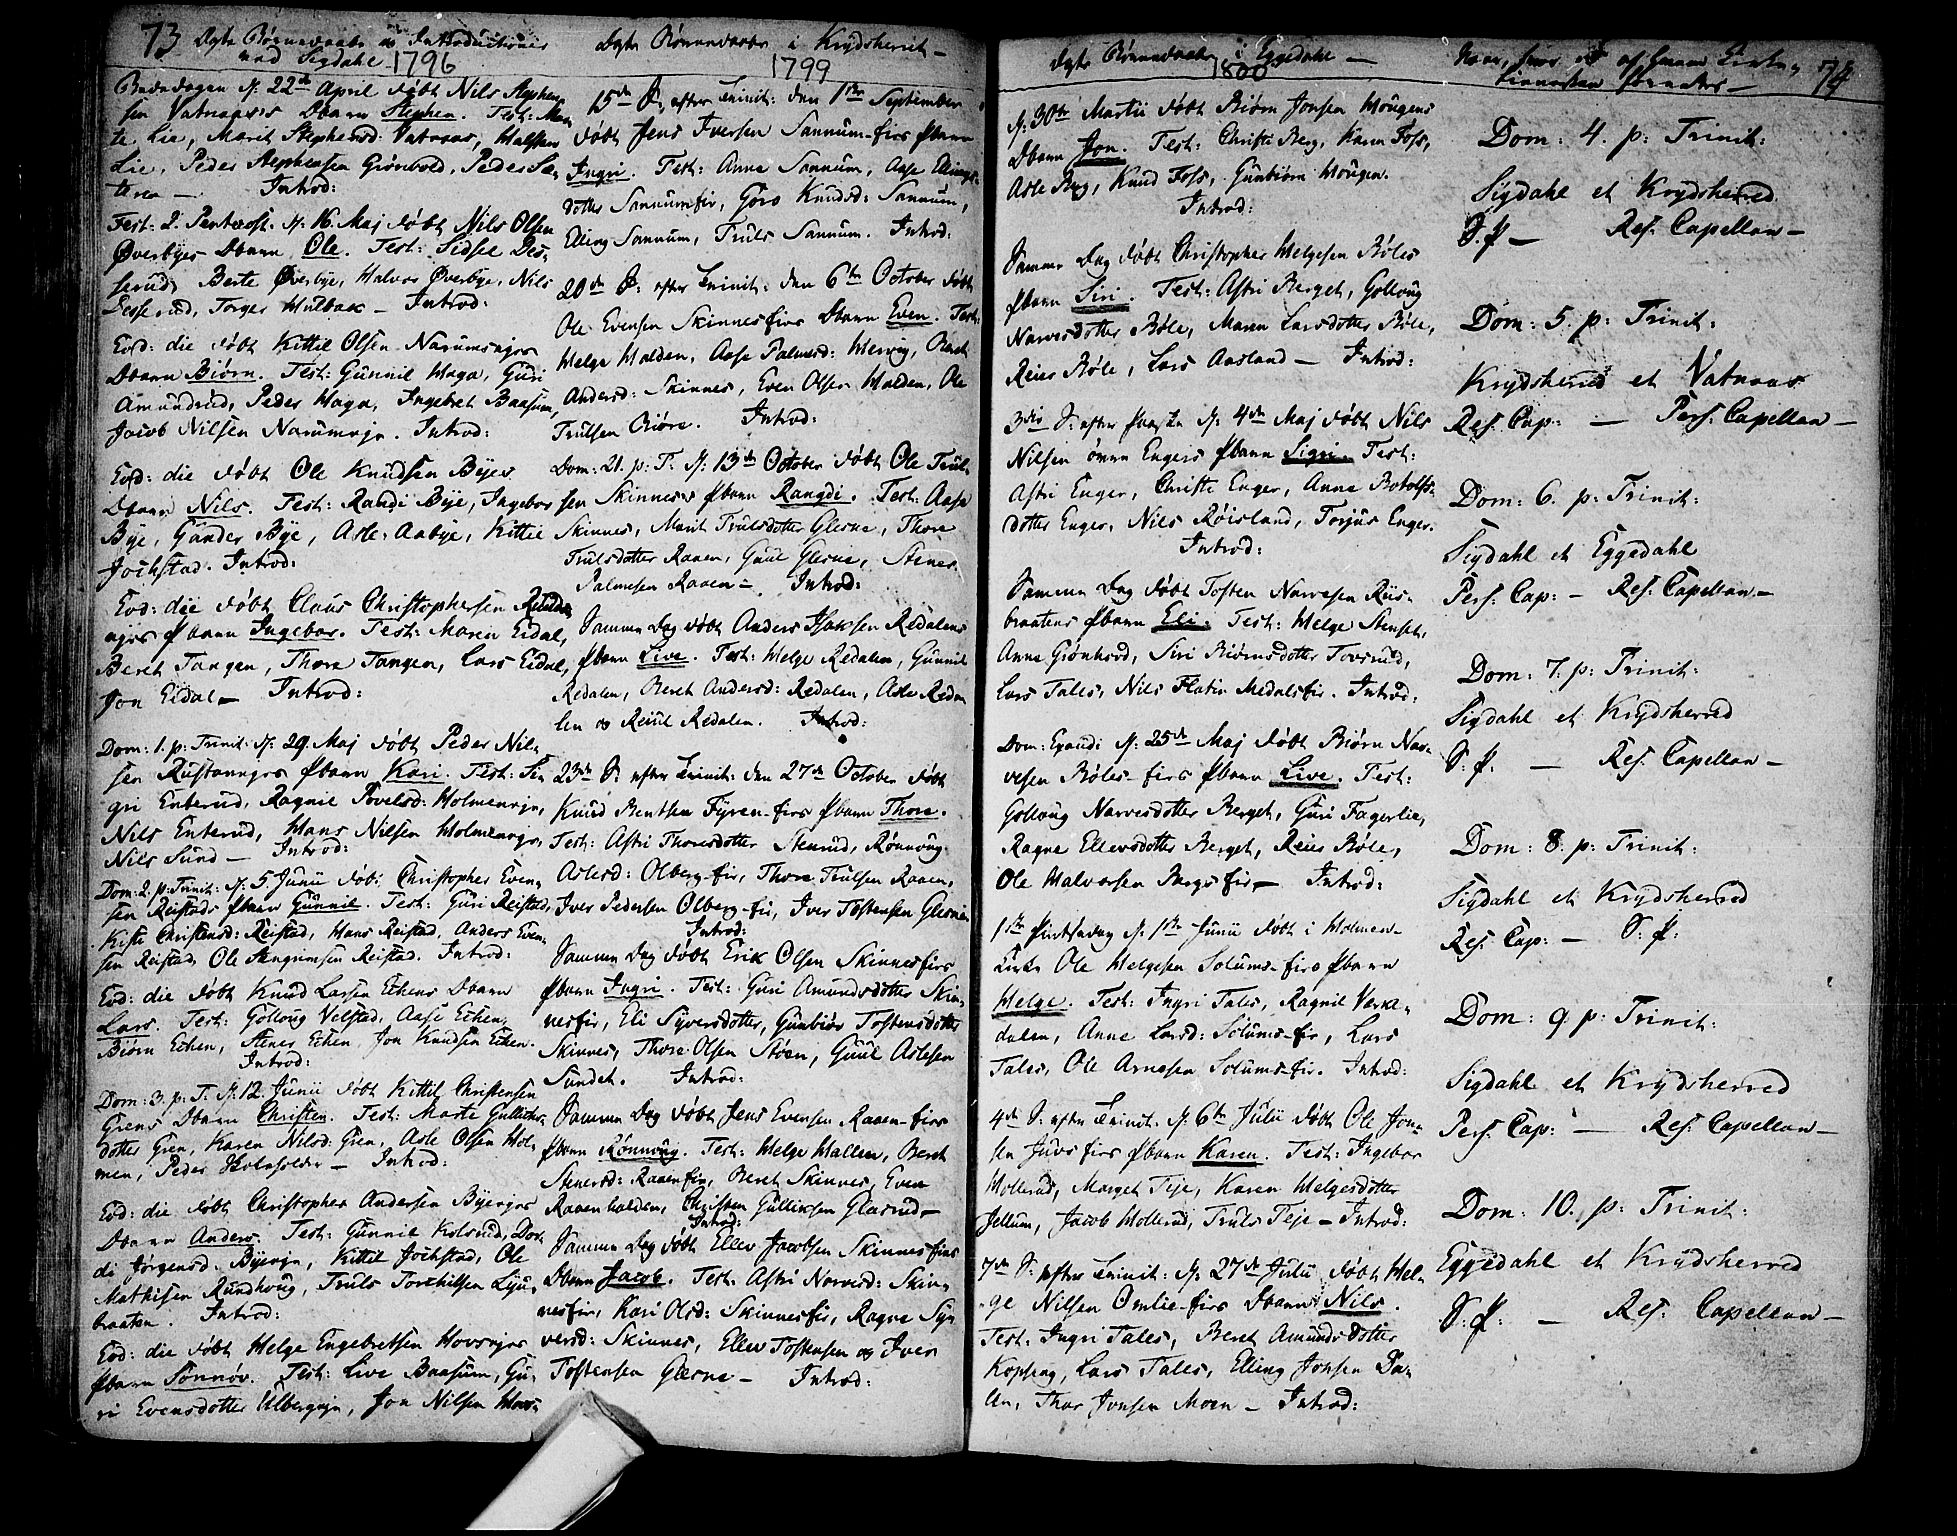 73 Dȯbte Børnedaabe og Introductioner
ved Sigdahl 1796
Bededagen d. 22de April døbt Nils Stephen-
sen Vatnaases Dbarn Stephen. Test: Mar-
te Lie, Marit Stephensd: Vatnaas, Halsten
Lie, Peder Stephensen Grønvold, Peder Sæ-
teren — Introd:
Fest: 2. Pentecost. d. 16. Maj døbt Nils Olsen
Øverbyes Dbarn Ole. Test: Sidsel Des-
serud, Berte Øverbye, Halvor Øverbye, Nils
Desserud, Torger Hulbak — Introd:
Eod: die døbt Kittil Olsen Narumsejes
Dbarn Biørn. Test: Gunnil Haga, Guri
Amundrud, Peder Haga, Ingebret Baasum,
Jacob Nilsen Narumseje. Introd:
Eod: die døbt Ole Knudsen Byes
Dbarn Nils. Test: Randi Bye, Ingebor
Bye, Gunder Bye, Asle Aabye, Kittil
Jochstad. Introd:
Eod: die døbt Claus Christophersen
Pbarn Ingebor. Test: Maren Eidal,
Beret Tangen, Thore Tangen, Lars Eidal,
Jon Eidal — Introd:
Dom: 1. p: Trinit: d. 29. Maj døbt Peder Nil-
sen Rustanejes Pbarn Kari. Test: Si-
gri Enterud, Ragnil Povelsd: Holmeneje,
Nils Enterud, Hans Nilsen Holmeneje,
Nils Lund — Introd:
Dom: 2. p: Trinit: d. 5 Junii døbt Christopher Even-
sen Reistads Pbarn Gunnil. Test: Guri Reistad,
Kisti Christensd: Reistad, Hans Reistad, Anders Even-
sen Reistad, Ole Reistad. Introd:
Eod: die døbt Knud Larsen Echens Dbarn
Lars. Test: Gollaug Velstad, Aase Echen,
Biørn Echen, Stener Echen, Jon Knudsen Echen.
Introd:
Dom: 3. p: T. d. 12. Junii døbt Kittil Christensen
Grens Dbarn Christen. Test: Marte Gulliks-
dotter Gren, Karen Nilsd: Gren, Asle Olsen Hol-
men, Peder — Introd:
Eod: die døbt Christopher Andersen Byeejes
Dbarn Anders. Test: Gunnil Kolsrud, Dor-
di Jørgensd: Byeeje, Kittil Jochstad, Ole
Mathisen Rundhoug, Truls Torchilsen Lyse-
braaten. Introd:
Eod: die døbt Helge Engebretsen Hovsejes
Pbarn Sønnøv. Test: Live Baasum, Gu-
ri Evensdotter Ulbergeje, Jon Nilsen Hovs-
Døbte Børnedaabe i Krydsherrit —
1799
15de S. after Trinit: den 1ste September
døbt Jens Iversen Sannum-eies Pbarn
Ingri. Test: Anne Sannum, Aase Ellings-
dotter Sannumeie, Gøro Knudsd: Sannum,
Elling Sannum, Truls Sannum. Introd:
20de S: after Trinit: den 6te October døbt
Ole Evensen Skinneseies Dbarn Even. Test:
Helge Halden, Aase Palmesd: Hervig, Beret
Andersd: Skinnes, Even Olsen Halden, Ole
Trulsen Biøre. Introd:
Dom: 21. p: T: d: 13de October døbt Ole Trul-
sen Skinneses Pbarn Rangdi. Test: Aase
Skinnes, Marit Trulsdotter Glesne, Thore
Trulsdotter Raaen, Guul Glesne, Stener
Palmesen Raaen — Introd:
Sammen Dag døbt Anders Isaksen Redalens
Pbarn Live. Test: Helge Redalen, Gunnil
Redalen, Beret Andersd: Redalen, Asle Reda-
len og Reiul Redalen. Introd:
23de S: after Trinit: den 27de October døbt
Knud Bentsen Fyren-eies Pbarn Thore.
Test: Astri Thoresdotter Stenrud, Rønnoug
Aslesd: Olberg-eie, Thore Trulsen Raaen,
Iver Pedersen Olberg-eie, Iver Tostensen Glesne
Introd:
Sammen Dag døbt Erik Olsen Skinneseies
Pbarn Ingri. Test: Guri Amundsdotter Skin-
neseie, Eli Syversdotter, Gunbiør Tostensdotter
Skinnes, Thore Olsen Støen, Guul Aslesen
Sundet. Introd:
Sammen Dag døbt Jens Evensen Raaen-eies
Pbarn Rønnoug. Test: Helge Hallen, Beret
Stenersd: Raaeneie, Beret Skinnes, Even
Raaenhalden, Christen Gulliksen Glasrud —
Introd:
Sammen Dag døbt Ellev Jacobsen Skinneseies
Dbarn Jacob. Test: Astri Narvesd: Skin-
neseie, Kari Olsd: Skinneseie, Ragne Sy-
versd: Skinnes, Ellev Tostensen og Iver
Tostensen Glesne — Introd:
Døbte Børnedaabe i Eggedahl —
1800
d: 30te Martii døbt Biørn Jonsen Hougens
Dbarn Jon. Test: Christi Berg, Karen Foss,
Asle Berg, Knud Foss, Gunbiørn Hougen.
Introd:
Sammen Dag døbt Christopher Helgesen Bøles
Pbarn Siri. Test: Astri Berget, Golloug
Narvesdotter Bøle, Maren Larsdotter Bøle,
Reier Bøle, Lars Aasland — Introd:
3die S: after Paaske d: 4de Maj døbt Nils
Nilsen Engers Pbarn Sigri. Test:
Astri Enger, Christi Enger, Anne Botolfs-
dotter Enger, Nils Røisland, Torjus Enger.
Introd:
Sammen Dag døbt Tosten Narvesen Ruis-
braatens Pbarn Eli. Test: Helge Stenset,
Anne Grønhovd, Siri Biørnsdotter Tovsrud,
Lars Tales, Nils Flatin Medalseie. Introd:
Dom: Exaudi d: 25de Maj døbt Biørn Nar-
vesen Bøles-eies Pbarn Live. Test:
Golloug Narvesdotter Berget, Guri Fagerlie,
Ragne Ellevsdotter Berget, Reier Bøle,
Ole Halvorsen Bergseie — Introd:
1ste Pintsedag d: 1ste Junii døbt i Holmen-
Kirke Ole Helgesen Solums-eies Pbarn
Helge. Test: Ingri Tales, Ragnil Verka-
dalen, Anne Larsd: Solums-eie, Lars
Tales, Ole Arnesen Solums-eie. Introd:
4de S: after Trinit. d: 6te Julii døbt Ole Jon-
sen Juvs eies Pbarn Karen. Test: Ingebor
Hollerud, Marget Teje, Karen Helgesdotter
Jellum, Jacob Hollerud, Truls Teje — Introd:
7de S: after Trinit: d: 27de Julii døbt Hel-
ge Nilsen Omlie-eies Dbarn Nils.
Test: Ingri Tales, Beret Amundsdotter
Kopseng, Lars Tales, Elling Jonsen Da-
len, Thor Jonsen Moen — Introd:
74
Dom: 4. p: Trinit:
Sigdahl et Krydsherred
S. P — Res: Capellan —
Dom: 5. p: Trinit:
Krydsherred et Vatnaas
Res: Cap: — Pers: Capellan —
Dom: 6. p: Trinit:
Sigdahl et Eggedahl
Pers: Cap: — Res: Capellan —
Dom: 7. p: Trinit:
Sigdahl et Krydsherred
S: P. — Res: Capellan —
Dom: 8. p: Trinit:
Sigdahl et Krydsherred
Res: Cap: — S: P:
Dom: 9. p: Trinit:
Sigdahl et Krydsherred
Pers: Cap: — Res: Capellan —
Dom: 10. p: Trinit:
Eggedahl et Krydsherred
S: P: — Res: Capellan —